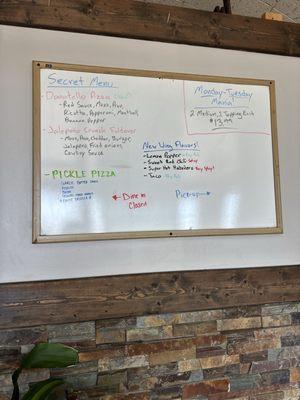 Secret Menu
- Donatello Azza
- Red Sauce, Mozz, Asia,
Ricotta, Pepperoni, Meatball,
Banana Pepper
- Jalapeño Crunch Turnover
- Mozz, Asia, Cheddar, Burger,
Jalapeño, Fried onions,
Cowboy Sauce
- PICKLE PIZZA
Monday-Tuesday
Mania!
2 Medium, 1 Topping Pizza
$13.99
New Wing Flavors!
- Lemon Pepper - Dry Rub
- Sweet Red Chili - Spicy
- Super Hot Habanero Very Spicy!
- Taco - Dry Rub
← Dine in
Closed
Pick-up →